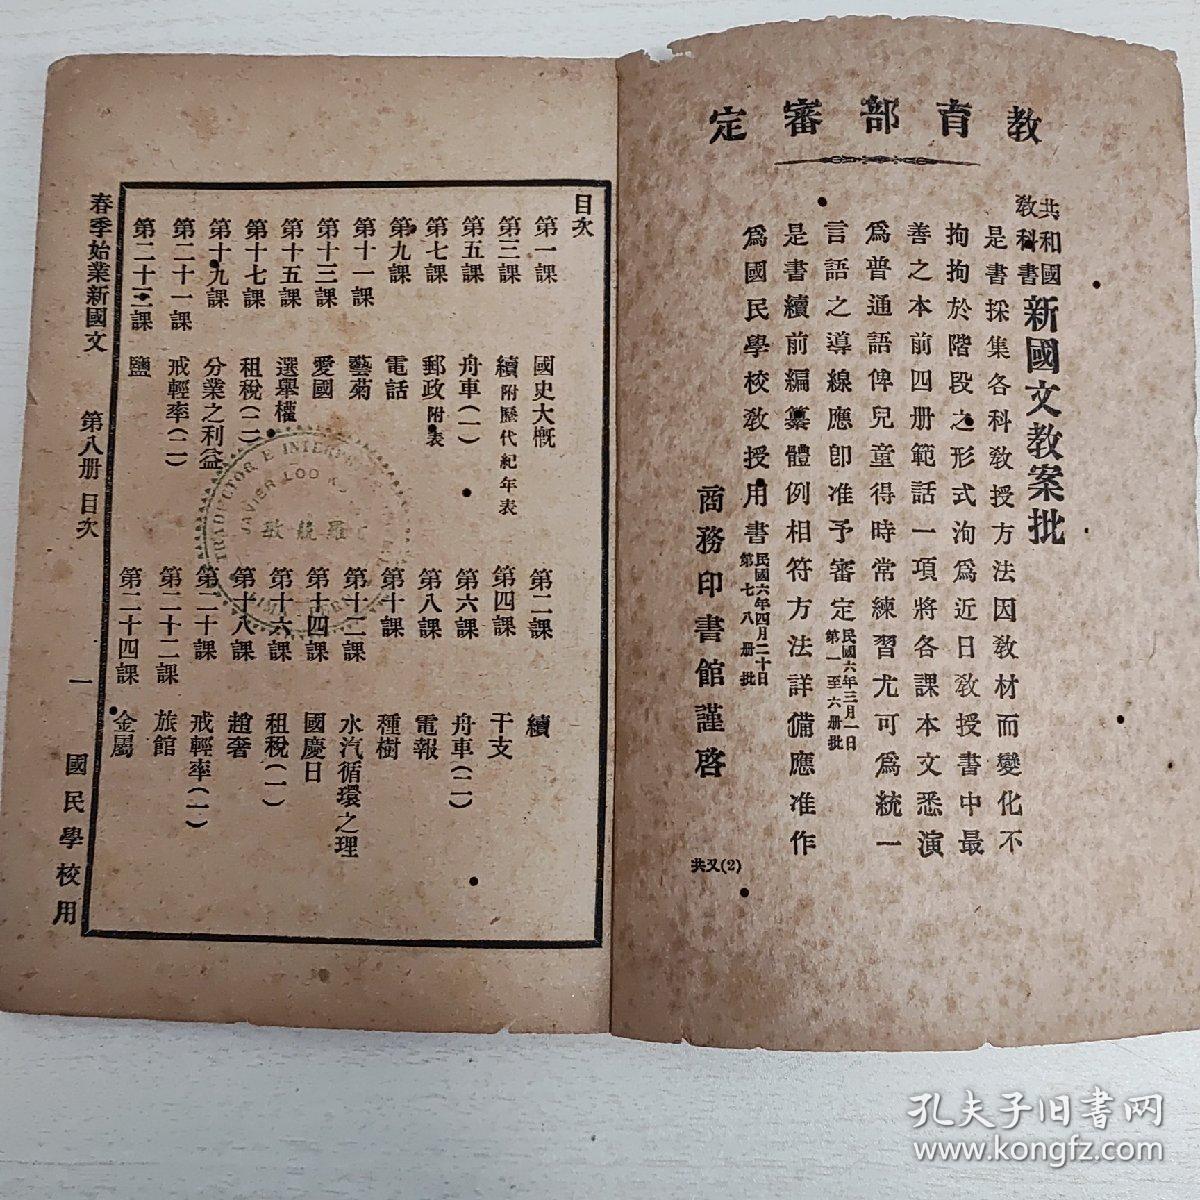 教育部審定
共和國教科書
新國文教案批
是書採集各科敎授方法因敎材而變化不
拘拘於階段之形式洵爲近日敎授書中最
善之本前四册範話一項將各課本文悉演
爲普通語俾兒童得時常練習尤可爲統一
言語之導線應卽准予審定 民國六年三月一日 第一至六册批
是書續前編纂體例相符方法詳備應准作
爲國民學校敎授用書 民國六年四月二十日 第七八册批
商務印書館謹啓
共又(2)
目次
第一課 國史大槪
第二課 續
第三課 續 附歷代紀年表
第四課 干支
第五課 舟車(一)
第六課 舟車(二)
第七課 郵政 附表
第八課 電報
第九課 電話
第十課 種樹
第十一課 藝菊
第十二課 水汽循環之理
第十三課 愛國
第十四課 國慶日
第十五課 選舉權
第十六課 租稅(一)
第十七課 租稅(二)
第十八課 趙奢
第十九課 分業之利益
第二十課 戒輕率(一)
第二十一課 戒輕率(二)
第二十二課 旅館
第二十三課 鹽
第二十四課 金屬
春季始業新國文 第八册 目次 一 國民學校用
TRADUCTOR E
JAVIER LOO
敏兢羅
孔夫子旧书网
www.kongfz.com